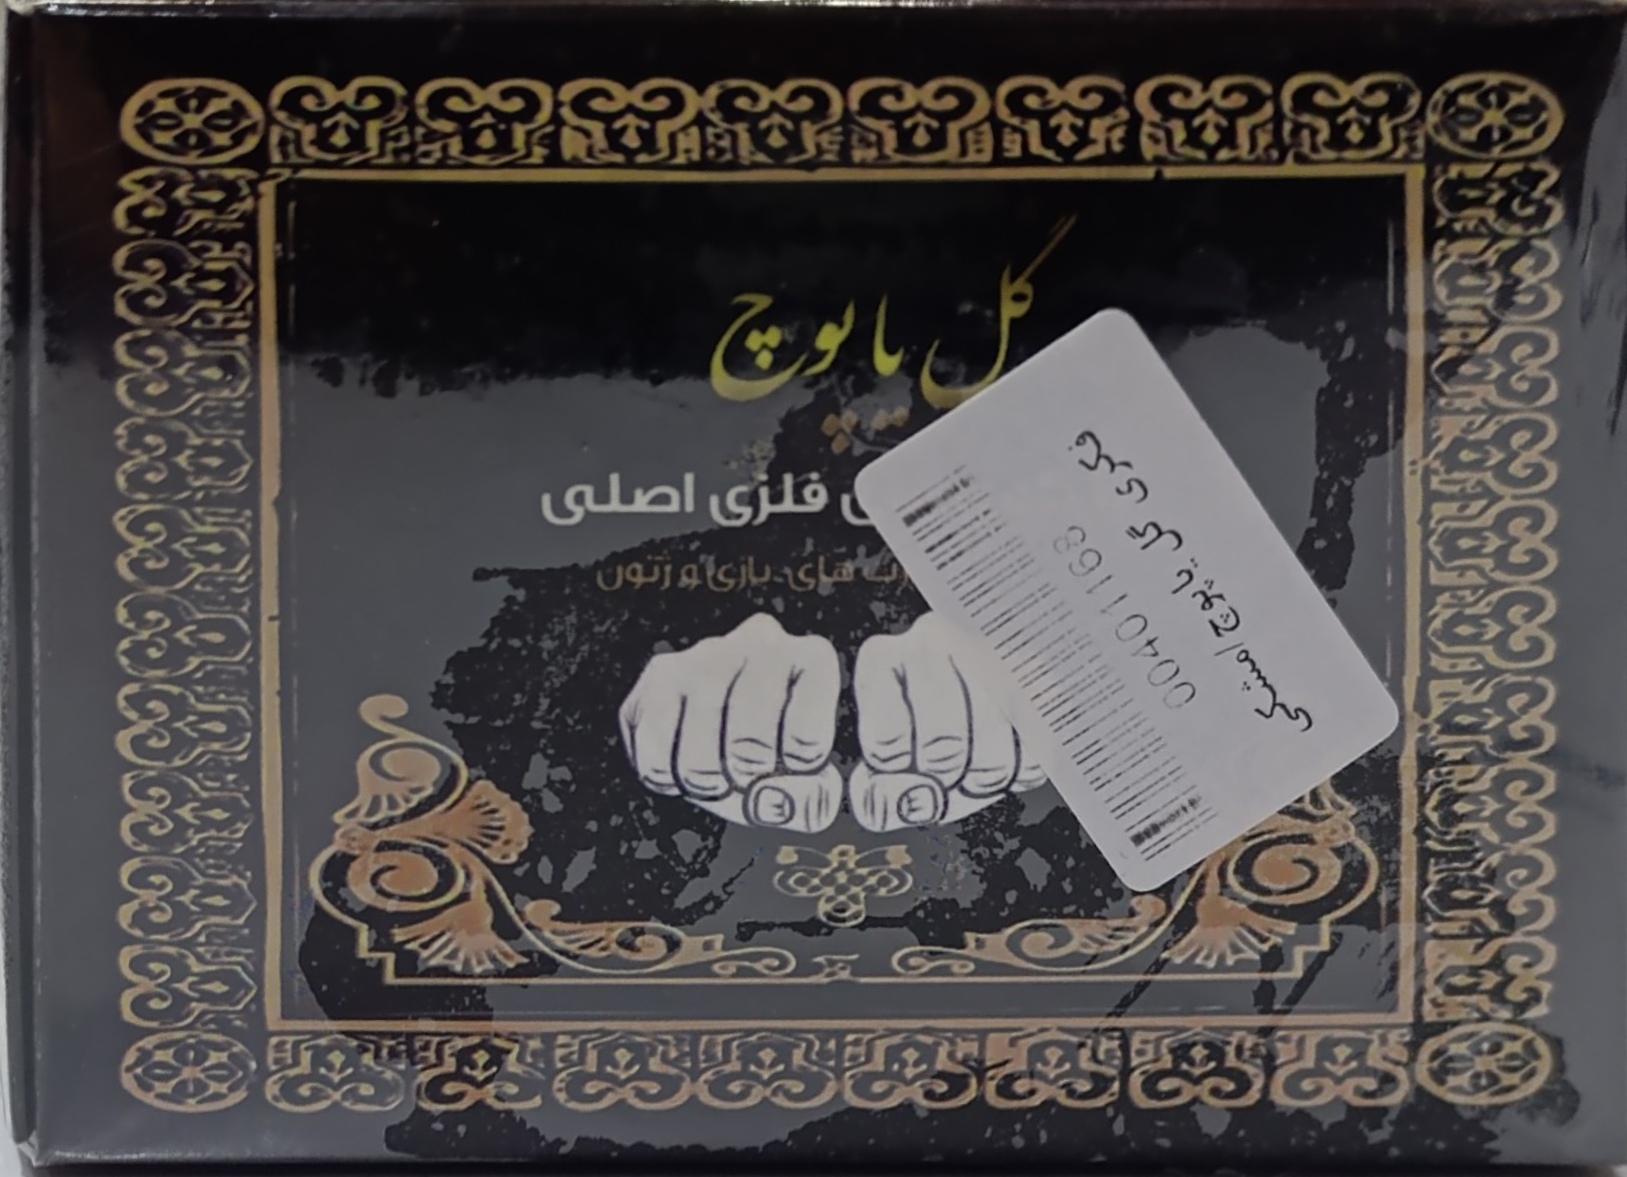 گل یا پوچ
فلزی اصلی
های بازی و ژتون
فکری گل یا پوچ/مشکی
00401168